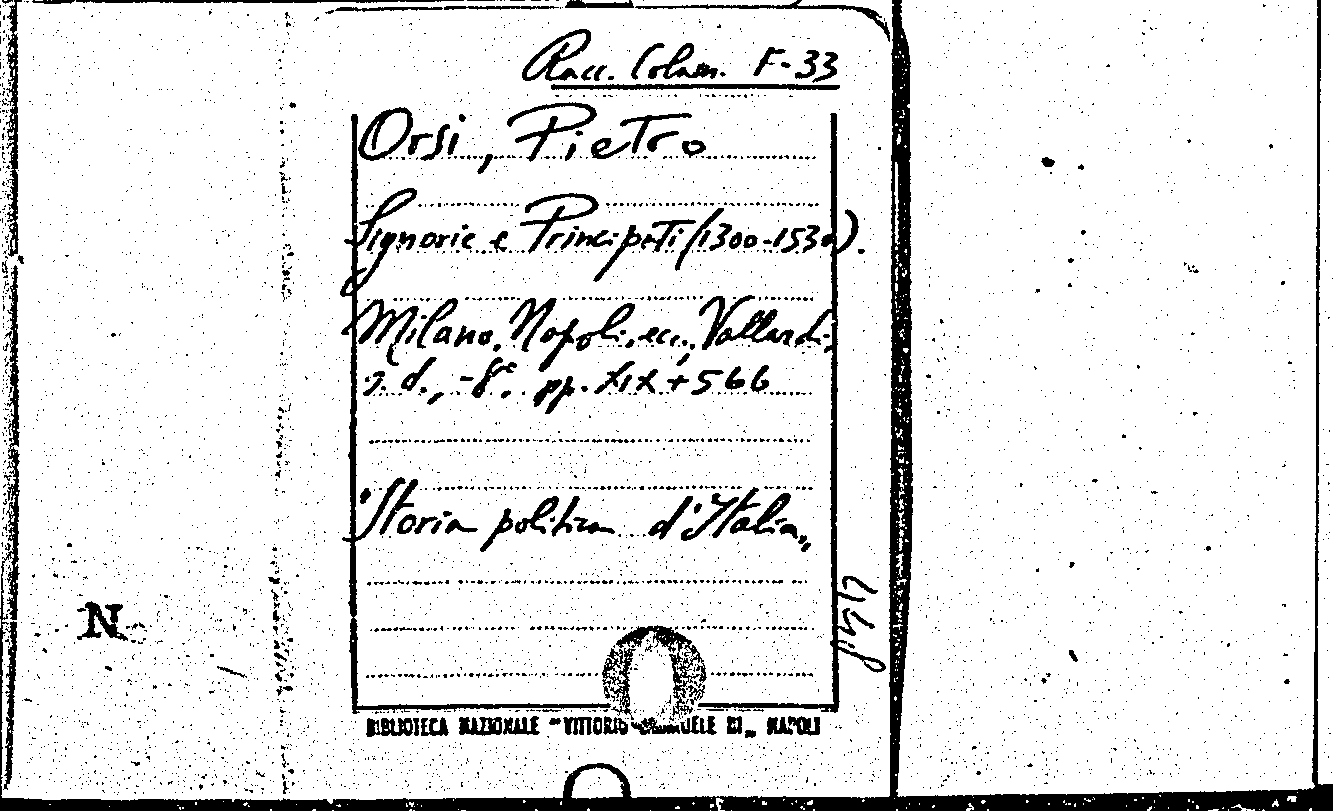 Racc. Colam. F-33
Orsi, Pietro
Signorie e Principati (1300-1530).
Milano, Napoli, ecc., Vallardi,
s. d., -8°. pp. XIX+566
"Storia politica d'Italia"
N
BIBLIOTECA NAZIONALE "VITTORIO EMANUELE III" NAPOLI